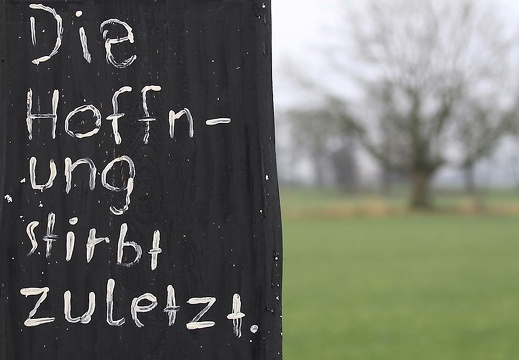 Die
Hoffn-
ung
stirbt
zuletzt.